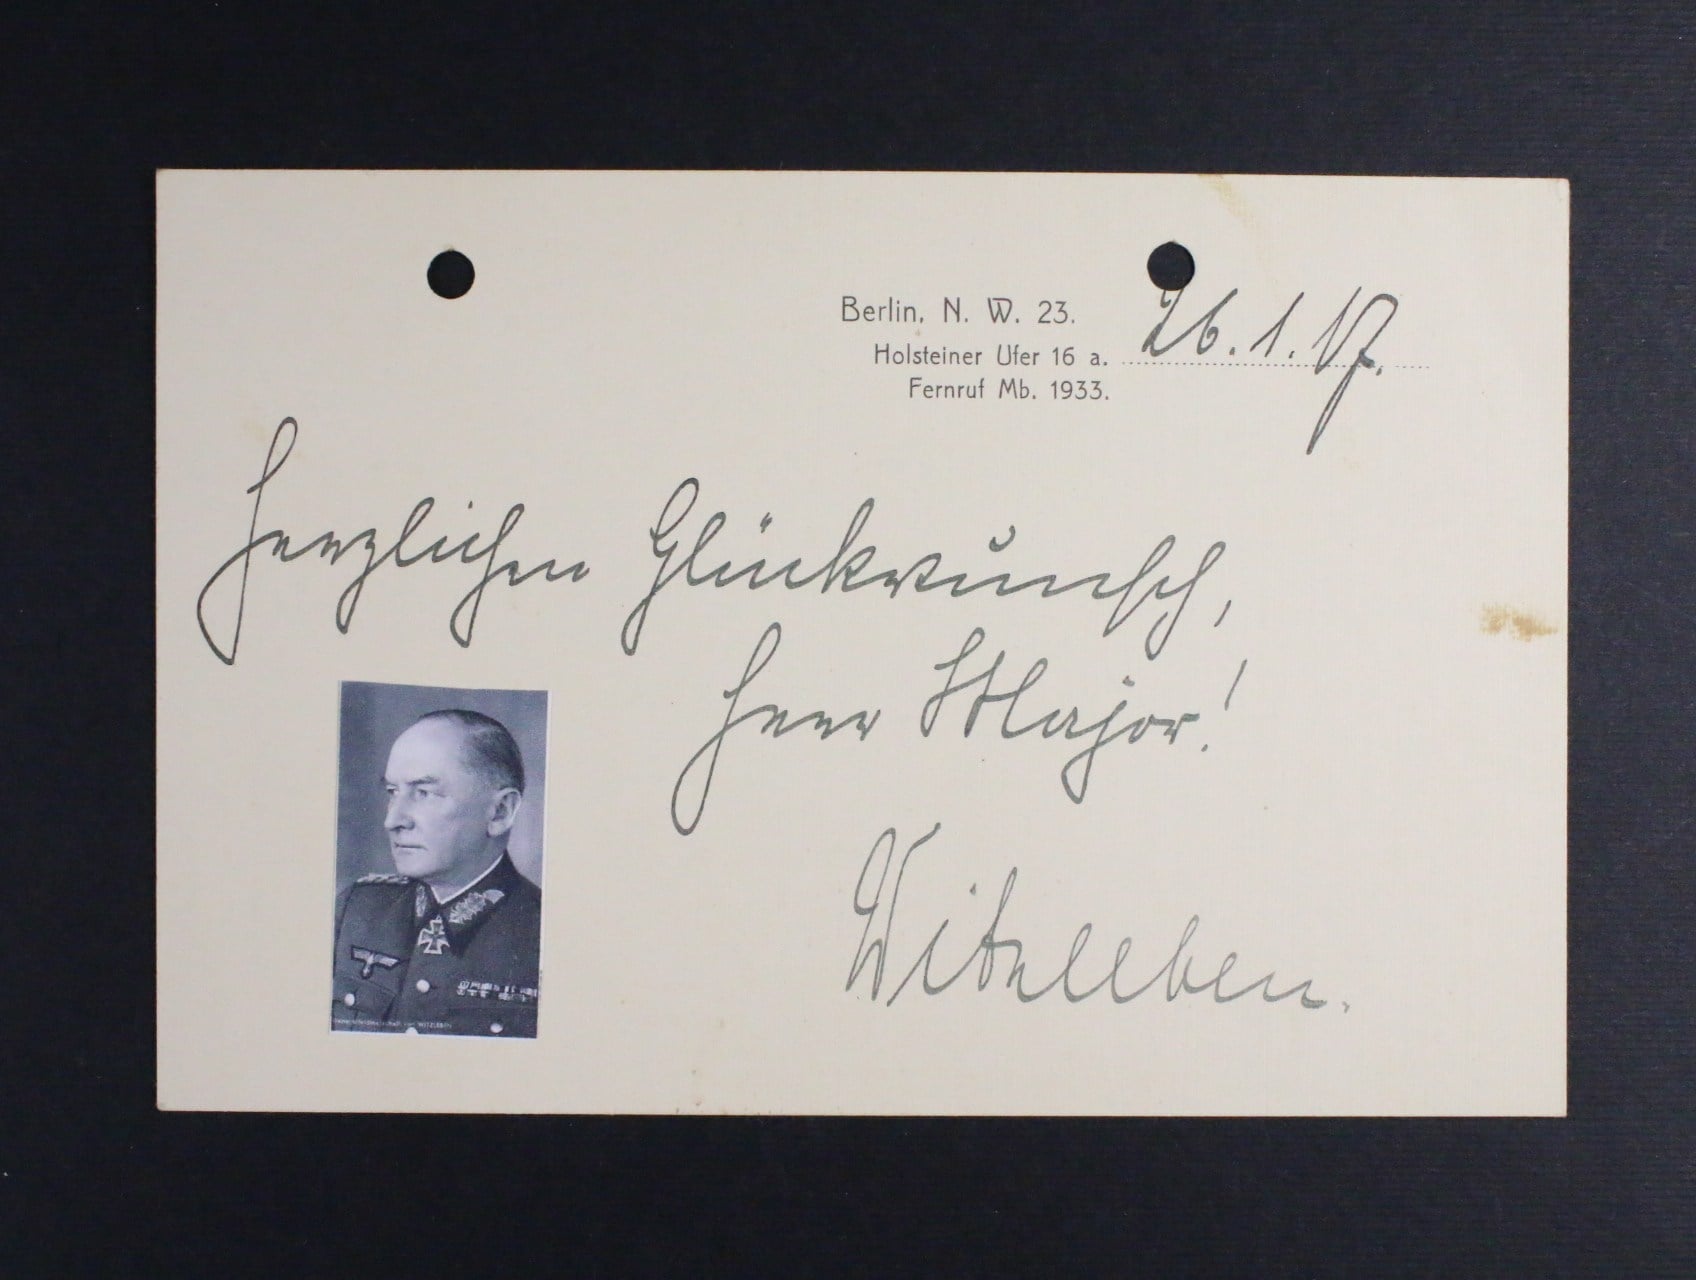 Berlin, N. W. 23.
Holsteiner Ufer 16 a. 26.1.17.
Fernruf Mb. 1933.
Herzlichen Glückwunsch,
Herr Major!
Witzleben.
von WITZLEBEN